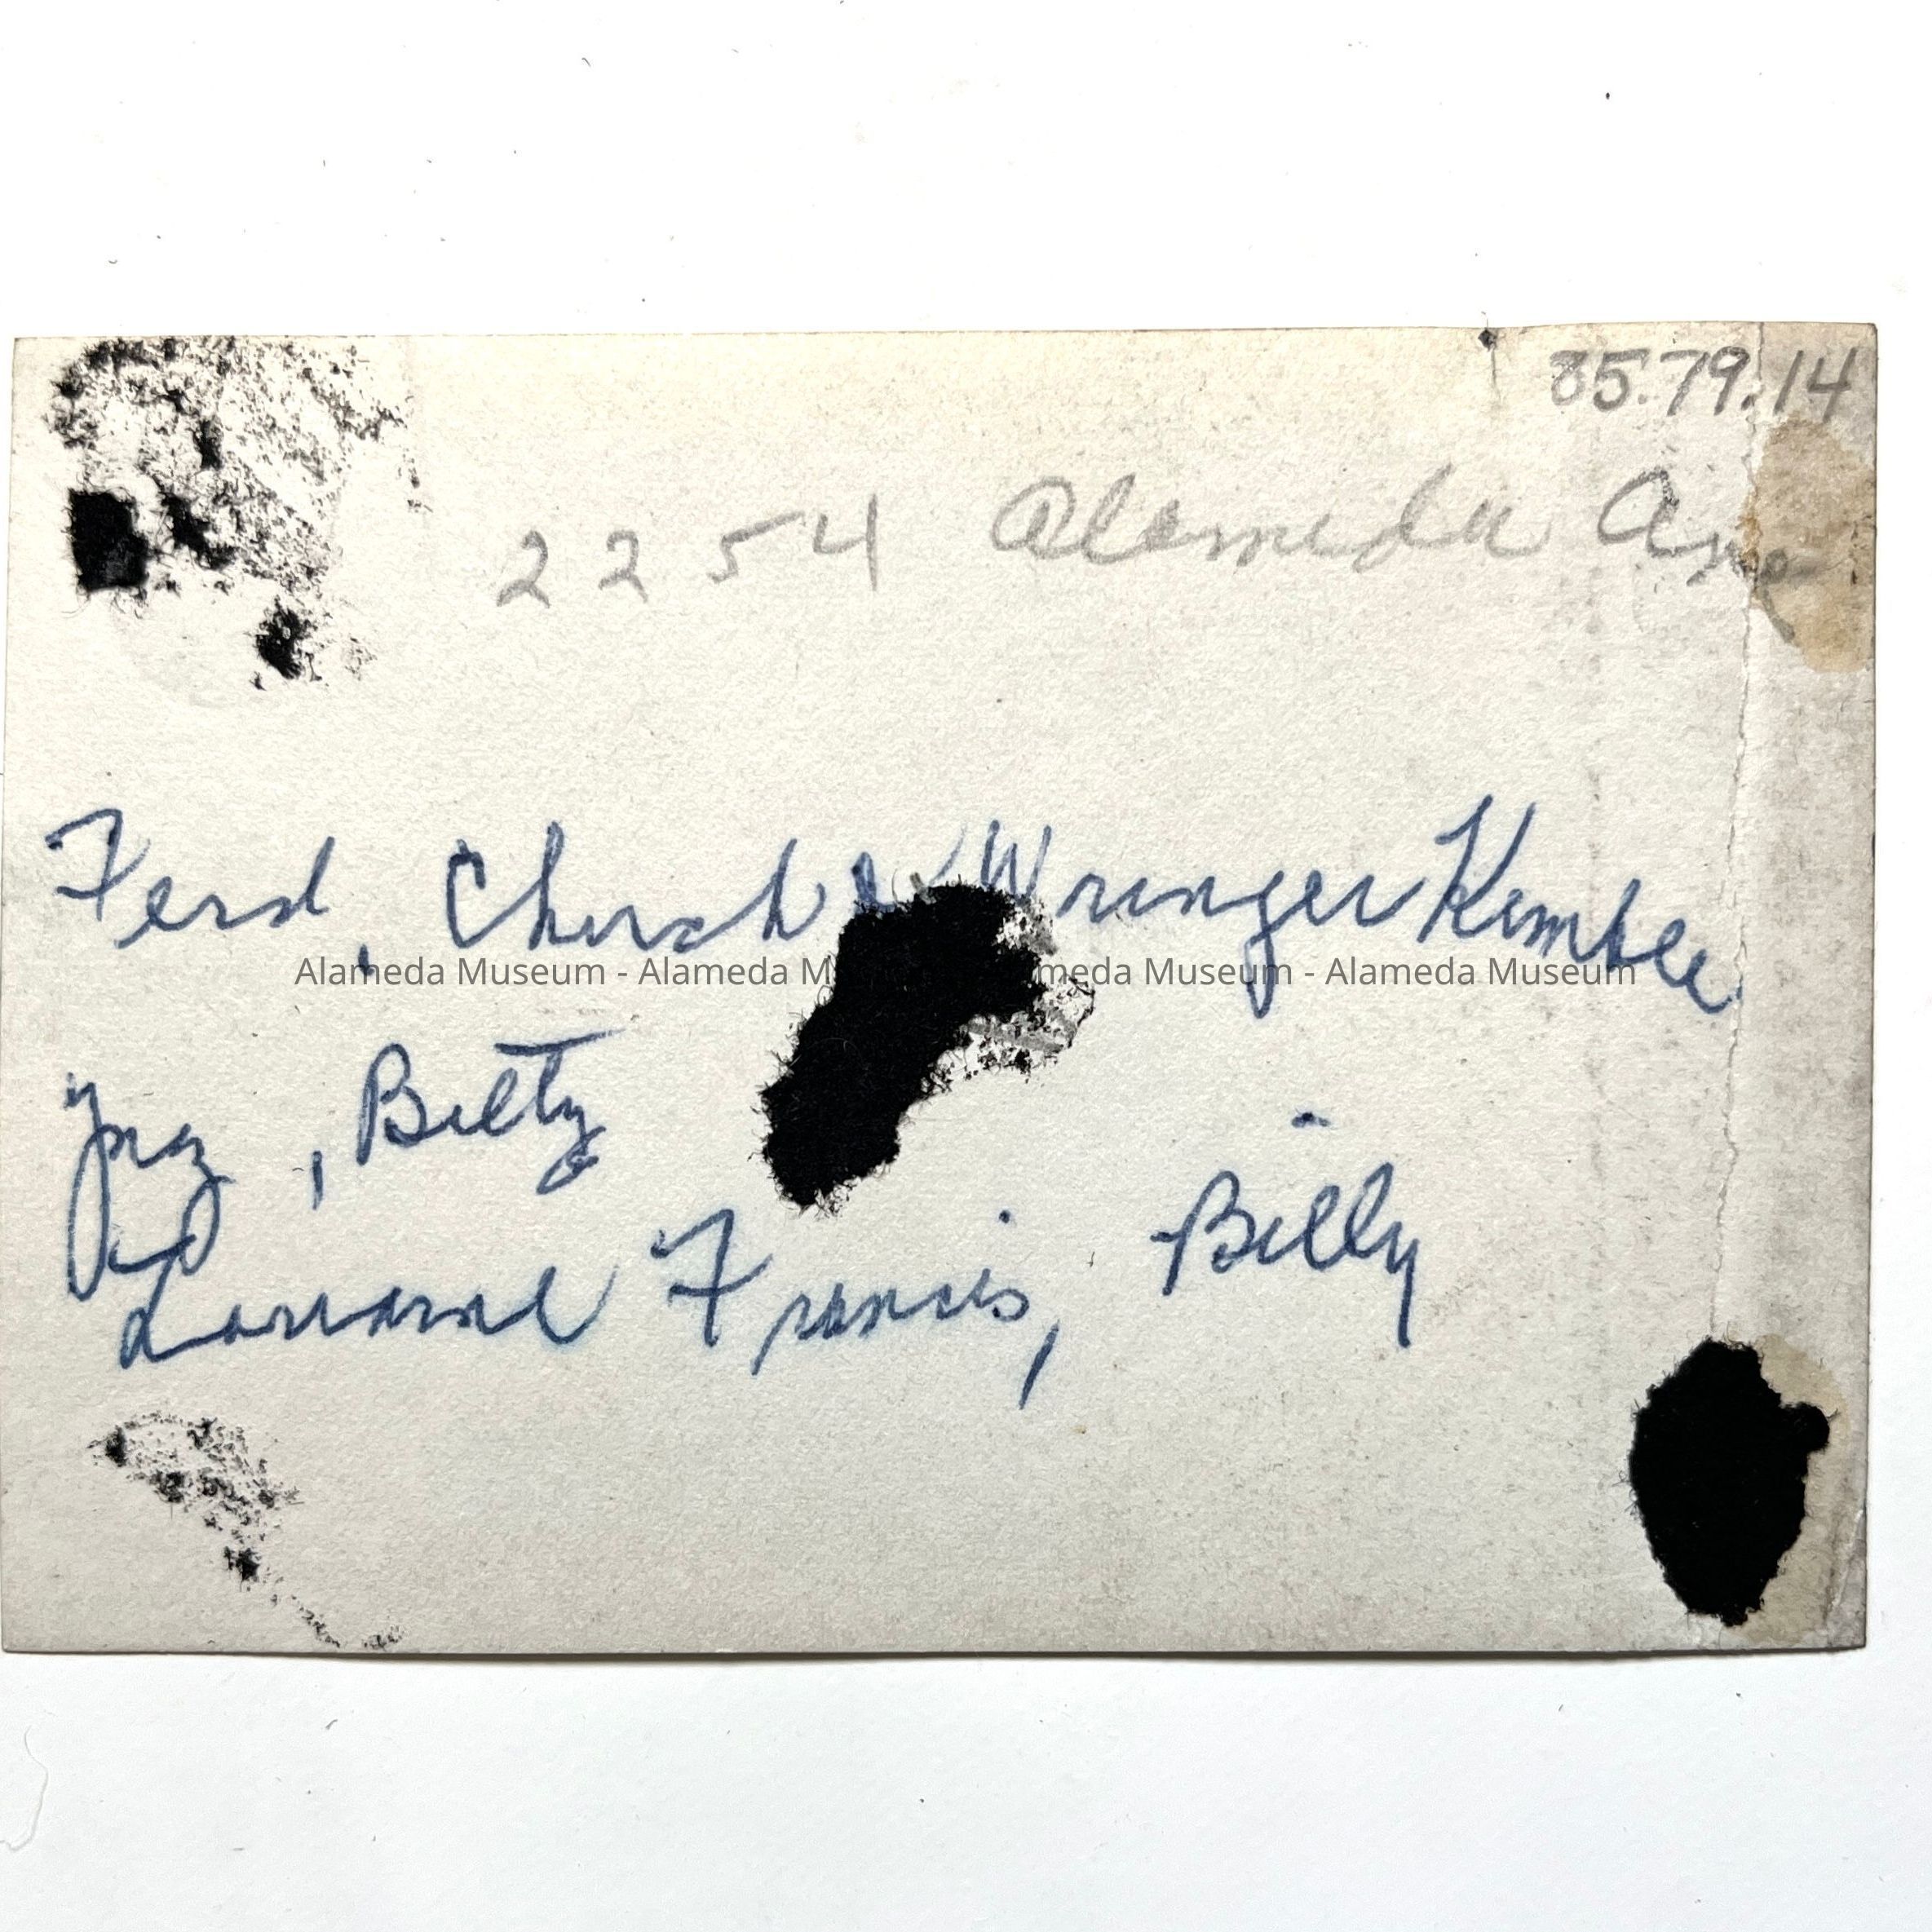 85.79.14
2254 Alameda Ave
Ferd, Church & Wringer Kimble
Ynez, Betty
Lorraine Francis, Billy
Alameda Museum - Alameda M meda Museum - Alameda Museum